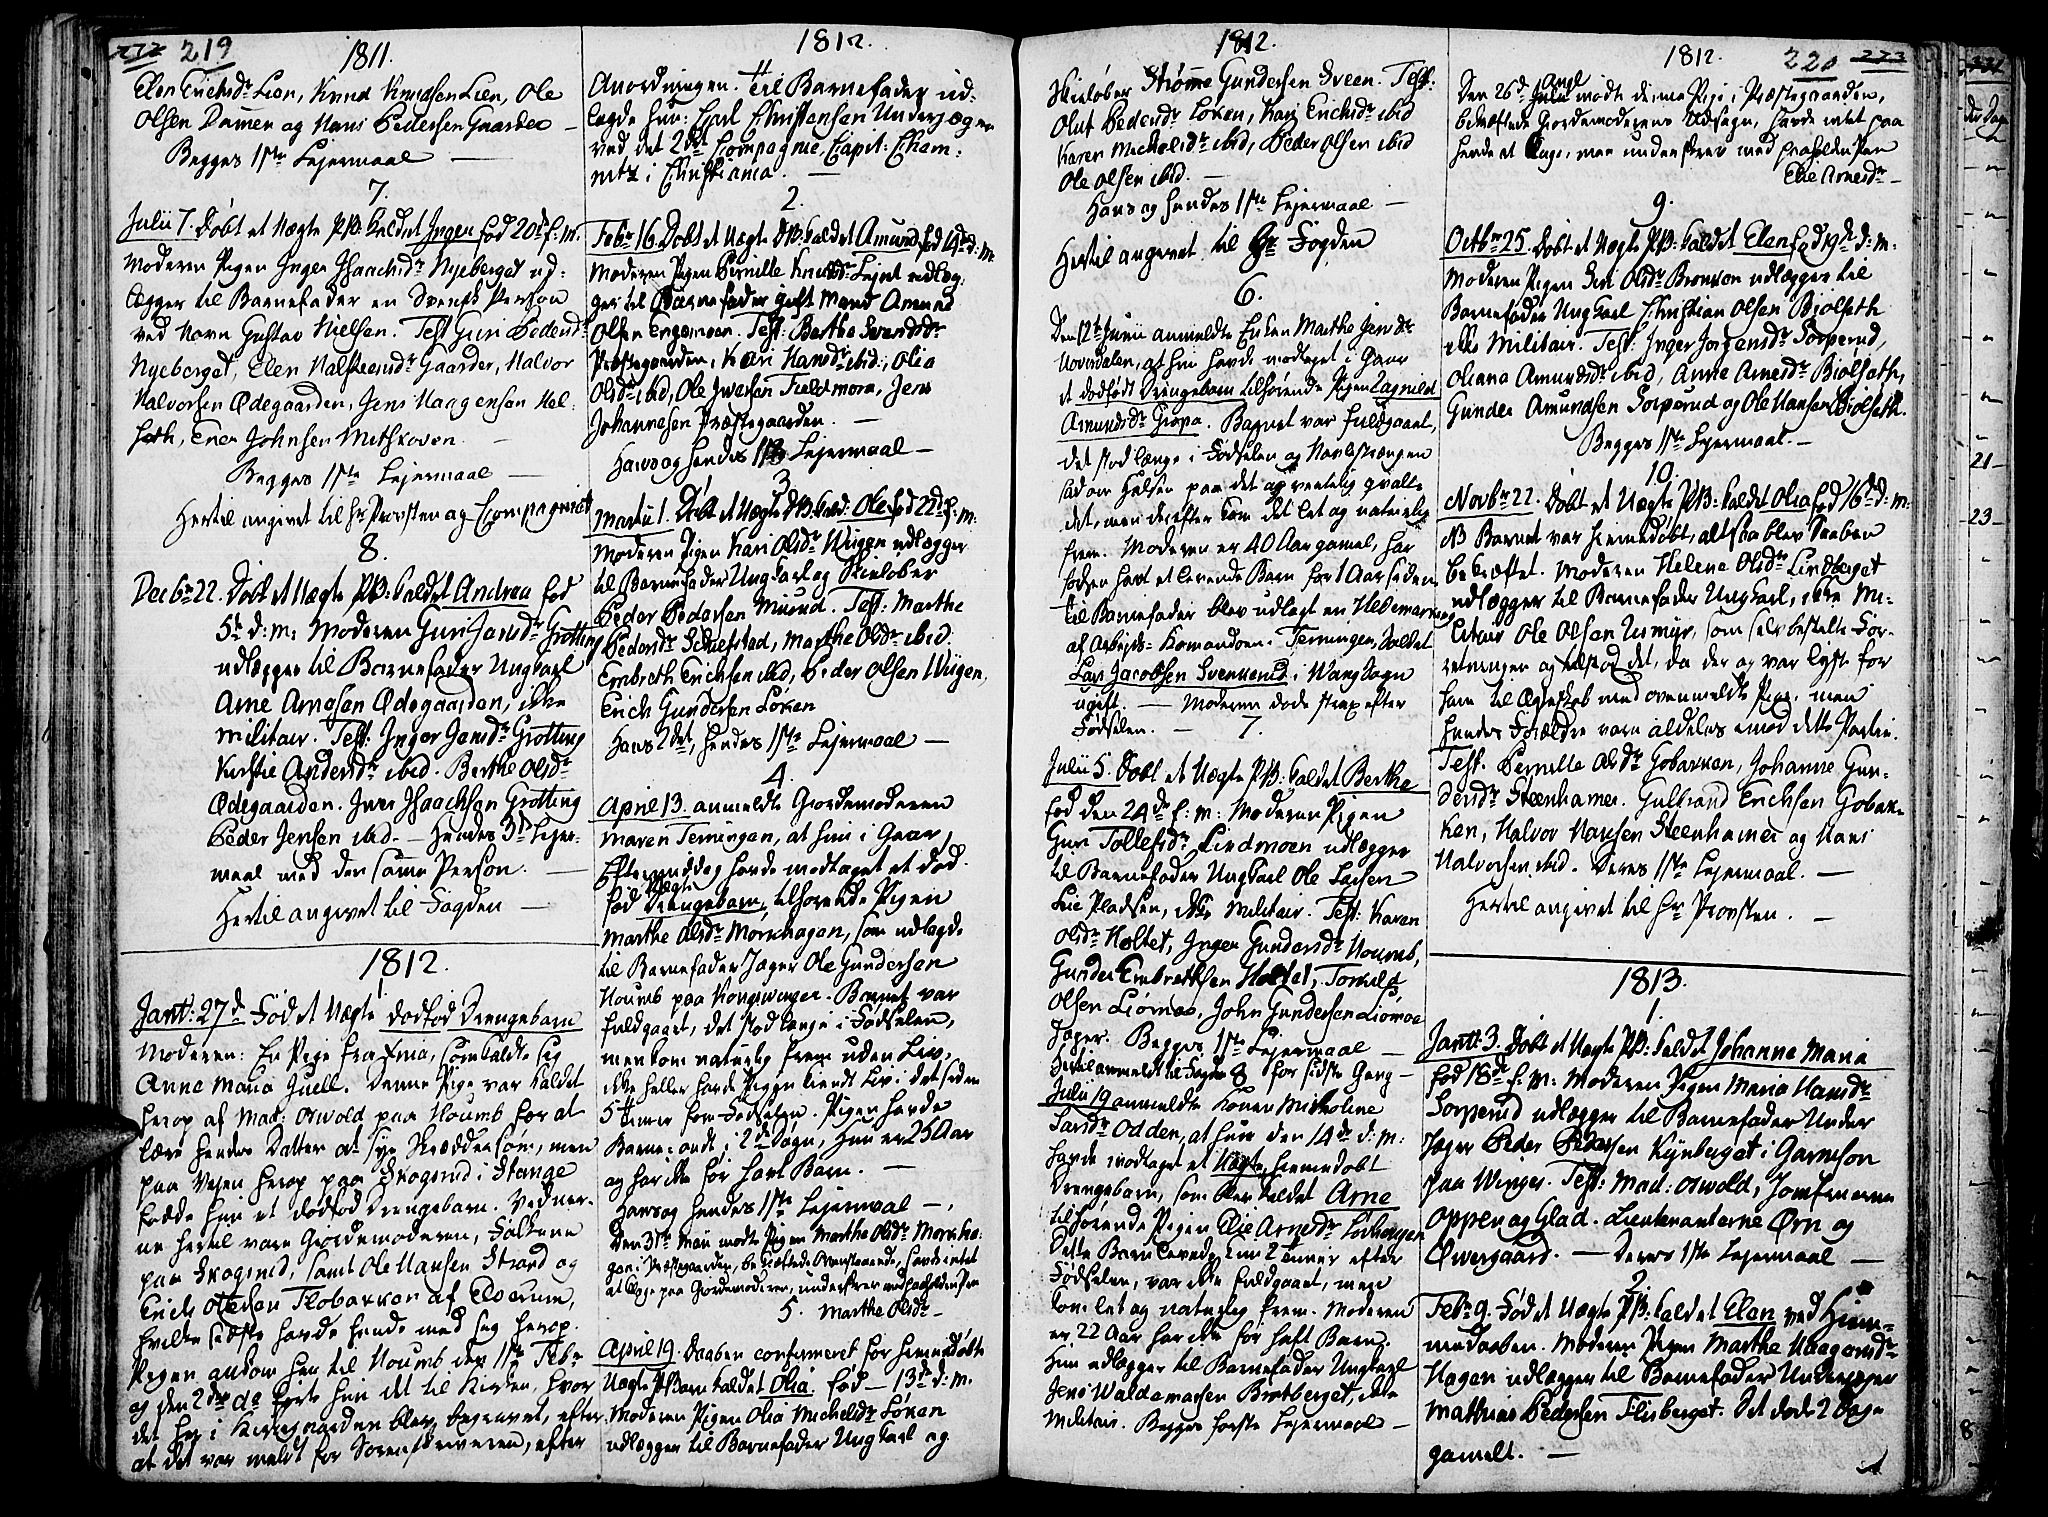 272 219
1811.
Elen Erichsdr Lien, Knud Knudsen Lien, Ole
Olsen Damen og Hans Pedersen Gaarder
Begges 1ste Lejermaal —
7.
Julii 7. Døbt et Uægte PB: kaldet Inger fød 20de f: m.
Moderen Pigen Inger Isaachsdr Nyeberget ud-
lægger til Barnefader en Svensk Person
ved Navn Gustav Nielsen. Test Guri Pedersdr
Nyeberget, Elen Halsteensdr Gaarder, Halvor
Halvorsen Ødegaarden, Jens Haagensen Hel-
seth, Ener Johnsen Mitskoven.
Begges 1ste Lejermaal —
Hertil angivet til Hr Provsten og Compagniet
8.
Decbr 22. Døbt et Uægte PB: kaldet Andrea fød
5te d: m: Moderen Guri Jensdr Grøtting
udlægger til Barnefader Ungkarl
Arne Arnesen Ødegaarden, ikke
militair. Test: Inger Jensdr Grøtting
Kirstie Andersdr ibid. Berthe Olsdr
Ødegaarden. Iver Isaachsen Grøtting
Peder Jensen ibid. — Hendes 3die Lejer-
maal med den samme Person.
Hertil angivet til Fogden —
1812.
1
Janr: 27de Fød et Uægte dødfød Drengebarn
Moderen: En Pige fra Xnia, som kaldte sig
Anne Maria Juell. Denne Pige var kaldet
herop af Mad: Oswold paa Houmb for at
lære hendes Datter at sye Skrædersøm, men
paa Vejen herop paa Skogrud i Stange
fødde hun et dødfød Drengebarn. Vidner-
ne hertil vare Giordemoderen, Folkene
paa Skogrud, samt Ole Hansen Strand og
Erich Ottesen Flobakken af Elverum,
hvilke sidste havde hende med sig herop.
Pigen ankom hen til Houmb den 1ste Febr
og den 2den do førte hun det til Kirken, hvor
det her i Kirkegaarden blev begravet, efter
at det var meldt for Sorenskriveren, efter
1812.
Anordningen. Til Barnefader ud-
lagde hun: Carl Christensen Underjæger
ved det 2det Compagnie, Capit: Cham-
nitz i Christiania. —
2.
Febr 16. Døbt et Uægte DB: kaldet Amund fød 4de d: m
Moderen Pigen Pernille Knudsdr Lejret udlæg-
ger til Barnefader gift Mand Amund
Olsen Engemoen. Test: Berthe Svendsdr
Præstegaarden, Kari Hansdr ibid:, Olia
Olsdr ibid, Ole Iversen Fieldmoen, Jens
Johannesen Præstegaarden. —
Hans og hendes 1ste Lejermaal —
3
Martii 1. Døbt et Uægte DB: kald: Ole fød 22de f: m:
Moderen Pigen Kari Olsdr Wiigen udlægger
til Barnefader Ungkarl og Skieløber
Peder Pedersen Musud. Test: Marthe
Pedersdr Schiefstad, Marthe Olsdr ibid:
Embreth Erichsen ibid, Peder Olsen Wiigen,
Erich Gundersen Løken
Hans 2det, hendes 1ste Lejermaal —
4.
April 13. anmeldte Giordemoderen
Maren Terningen, at hun i Gaar
Eftermiddag havde modtaget et død-
fød Uægte Drengebarn, tilhørende Pigen
Marthe Olsdr Morkhagen, som udlagde
til Barnefader Jæger Ole Gundersen
Houmb paa Kongswinger. Barnet var
fuldgaaet, det stod længe i Fødselen,
men kom naturlig frem uden Liv,
ikke heller havde Pigen kiendt Liv i det siden
5 timer før Fødselen. Pigen havde
Barne-ondt i 2de Døgn, Hun er 25 Aar
og har ikke før havt Barn. —
Hans og hendes 1ste Lejermaal —
Den 31te Maii mødte Pigen Marthe Olsdr Morkha-
gen i Præstegaarden, bekræftede Ovenstaaende, havde intet
at klage paa Giordemoderen, underskrev med paaholden Pen
5. Marthe Olsdr —
April 19. Daaben confirmeret for hiemmedøbte
Uægte PBarn kaldet Olia. fød — 13de d: m.
Moderen Pigen Olia Michelsdr Løken
udlægger til Barnefader Ungkarl og
1812.
Skieløber Strømme Gundersen Sveen. Test:
Oluf Pedersdr Løken, Kari Erichsdr ibid
Karen Micholsdr ibid, Peder Olsen ibid
Ole Olsen ibid. —
Hans og hendes 1ste Lejermaal —
Hertil angivet til Hr Fogden
6.
Den 12te Junii anmeldte Enken Marthe Jensdr
Hovindalen, at hun havde modtaget i Gaar
et dødfødt Drengebarn tilhørende Pigen Lagnild
Amundsdr Grøpa. Barnet var fuldgaaet,
det stod længe i Fødselen og Navlestrængen
sad om Halsen paa det og ventelig qvalte
det, men derefter kom det let og naturlig
frem. Moderen er 40 Aar gamel, har
forhen havt et levende Barn for 1 Aar siden
Til Barnefader blev udlagt en Hedemarking
af Arbejds-Komandoen i Terningen, kaldet
Lars Jacobsen Svenkerud i Wang Sogn
ugift. — Moderen døde strax efter
Fødselen. — 7.
Julii 5. Døbt et Uægte PB: kaldet Berthe
fød den 24de f: m: Moderen Pigen
Guri Tollefsdr Lindmoen udlægger
til Barnefader Ungkarl Ole Larsen
Lie Pladsen, ikke Militair. Test: Karen
Olsdr Holtet, Inger Gundersdr Houmb,
Gunder Embrethsen Holtet, Torkild
Olsen Liømoe, John Gundersen Liømoe
Jæger. Begges 1ste Lejermaal —
Hertil anmeldt til Fogden 8 for sidste Gang —
Julii 19 anmeldte Konen Micheline
Larsdr Odden, at hun den 14de d: m:
havde modtaget et Uægte hiemmedøbt
Drengebarn, som blev kaldet Arne
tilhørende Pigen Elie Arnesdr Løvbergen
Dette Barn levede kun 2 timer efter
Fødselen, var ikke fuldgaaet, men
kom let og naturlig frem. Moderen
er 22 Aar har ikke før haft Barn.
Hun udlægger til Barnefader Ungkarl
Jens Waldemarsen Bratberget, ikke
Militair. Begges første Lejermaal —
1812. 220 273
Den 26de Aug mødte denne Pige i Præstegaarden,
bekræftede Giordemoderens Udsagn, havde intet paa
hende at klage, men underskrev med paaholden Pen
Elie Arnesdr —
9.
Octbr 25. Døbt et Uægte PB: kaldet Elen fød 19de d: m:
Moderen Pigen Siri Olsdr Bronken udlægger til
Barnefader Ungkarl Christian Olsen Biølseth
ikke Militair. Test: Inger Jorgensdr Sorperud,
Oliana Amundsdr ibid, Anne Arnesdr Biølseth,
Gunder Amundsen Sorperud og Ole Hansen Biølseth.
Begges 1ste Lejermaal. —
10.
Novbr 22. Døbt et Uægte PB: kaldet Olia fød 16de d: m:
NB Barnet var hiemedøbt, altsaa blev Daaben
bekræftet. Moderen Helene Olsdr Lindberget
udlægger til Barnefader Ungkarl, ikke Mi-
litair Ole Olsen Usmyr, som selv bestilte For-
retningen og tilstod det, da der og var lyst for
ham til Ægteskab med ovenmeldte Pige, men
hendes Forældre vare aldeles imod dette Partie.
Test. Pernille Olsdr Gobakken, Johanne Gun-
dersdr Steenhamer. Gulbrand Erichsen Gobak-
ken, Halvor Hansen Steenhamer og Hans
Halvorsen ibid. Deres 1ste Lejermaal. —
Hertil angivet til Hr Provsten. —
1813.
1.
Janr 3. Døbt et Uægte PB: kaldet Johanne Maria
fød 18de f: m: Moderen Pigen Maria Hansdr
Sorperud udlægger til Barnefader Under
Jæger Peder Pedersen Kynberget i Garnison
paa Winger. Test: Mad: Oswold, Jomfruerne
Oppen og Glad. Lieutenanterne Ørn og
Øvergaard. — Deres 1ste Lejermaal —
2.
Febr 9. Fød et Uægte PB: kaldet Elen ved Hiem-
medaaben. Moderen Pigen Marthe Haagensdr
Hagen udlægger til Barnefader Underjæger
Mathias Pedersen Flisberget. Det døde 2 Dage
gamelt. —
21
23
8